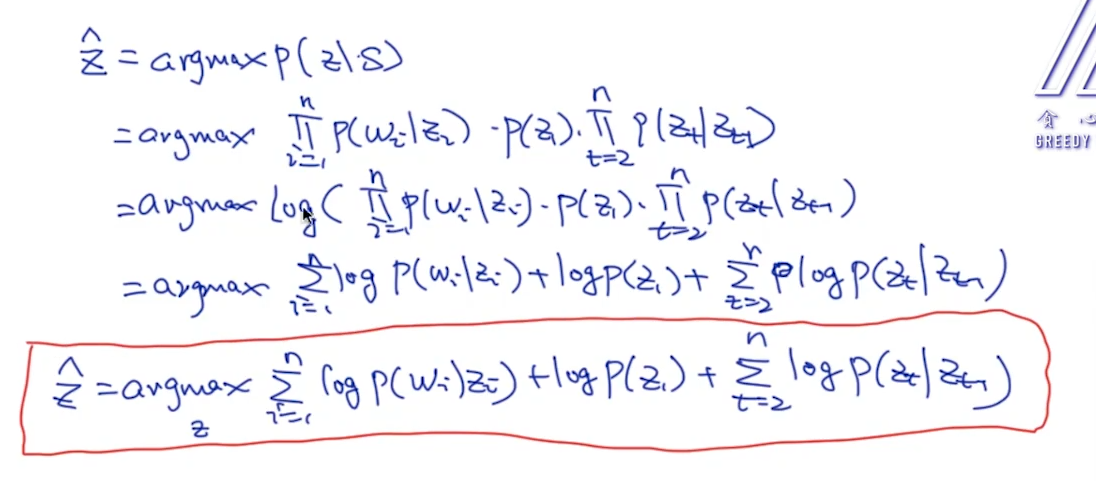 ẑ = argmax p(z|S)
= argmax ∏_{i=1}^{n} p(w_i|z_i) · p(z_1) · ∏_{t=2}^{n} p(z_t|z_{t-1})
= argmax log( ∏_{i=1}^{n} p(w_i|z_i) · p(z_1) · ∏_{t=2}^{n} p(z_t|z_{t-1})
= argmax ∑_{i=1}^{n} log p(w_i|z_i) + log p(z_1) + ∑_{t=2}^{n} log p(z_t|z_{t-1})
ẑ = argmax_z ∑_{i=1}^{n} log p(w_i)z_i) + log p(z_1) + ∑_{t=2}^{n} log p(z_t|z_{t-1})
贪心
GREEDY